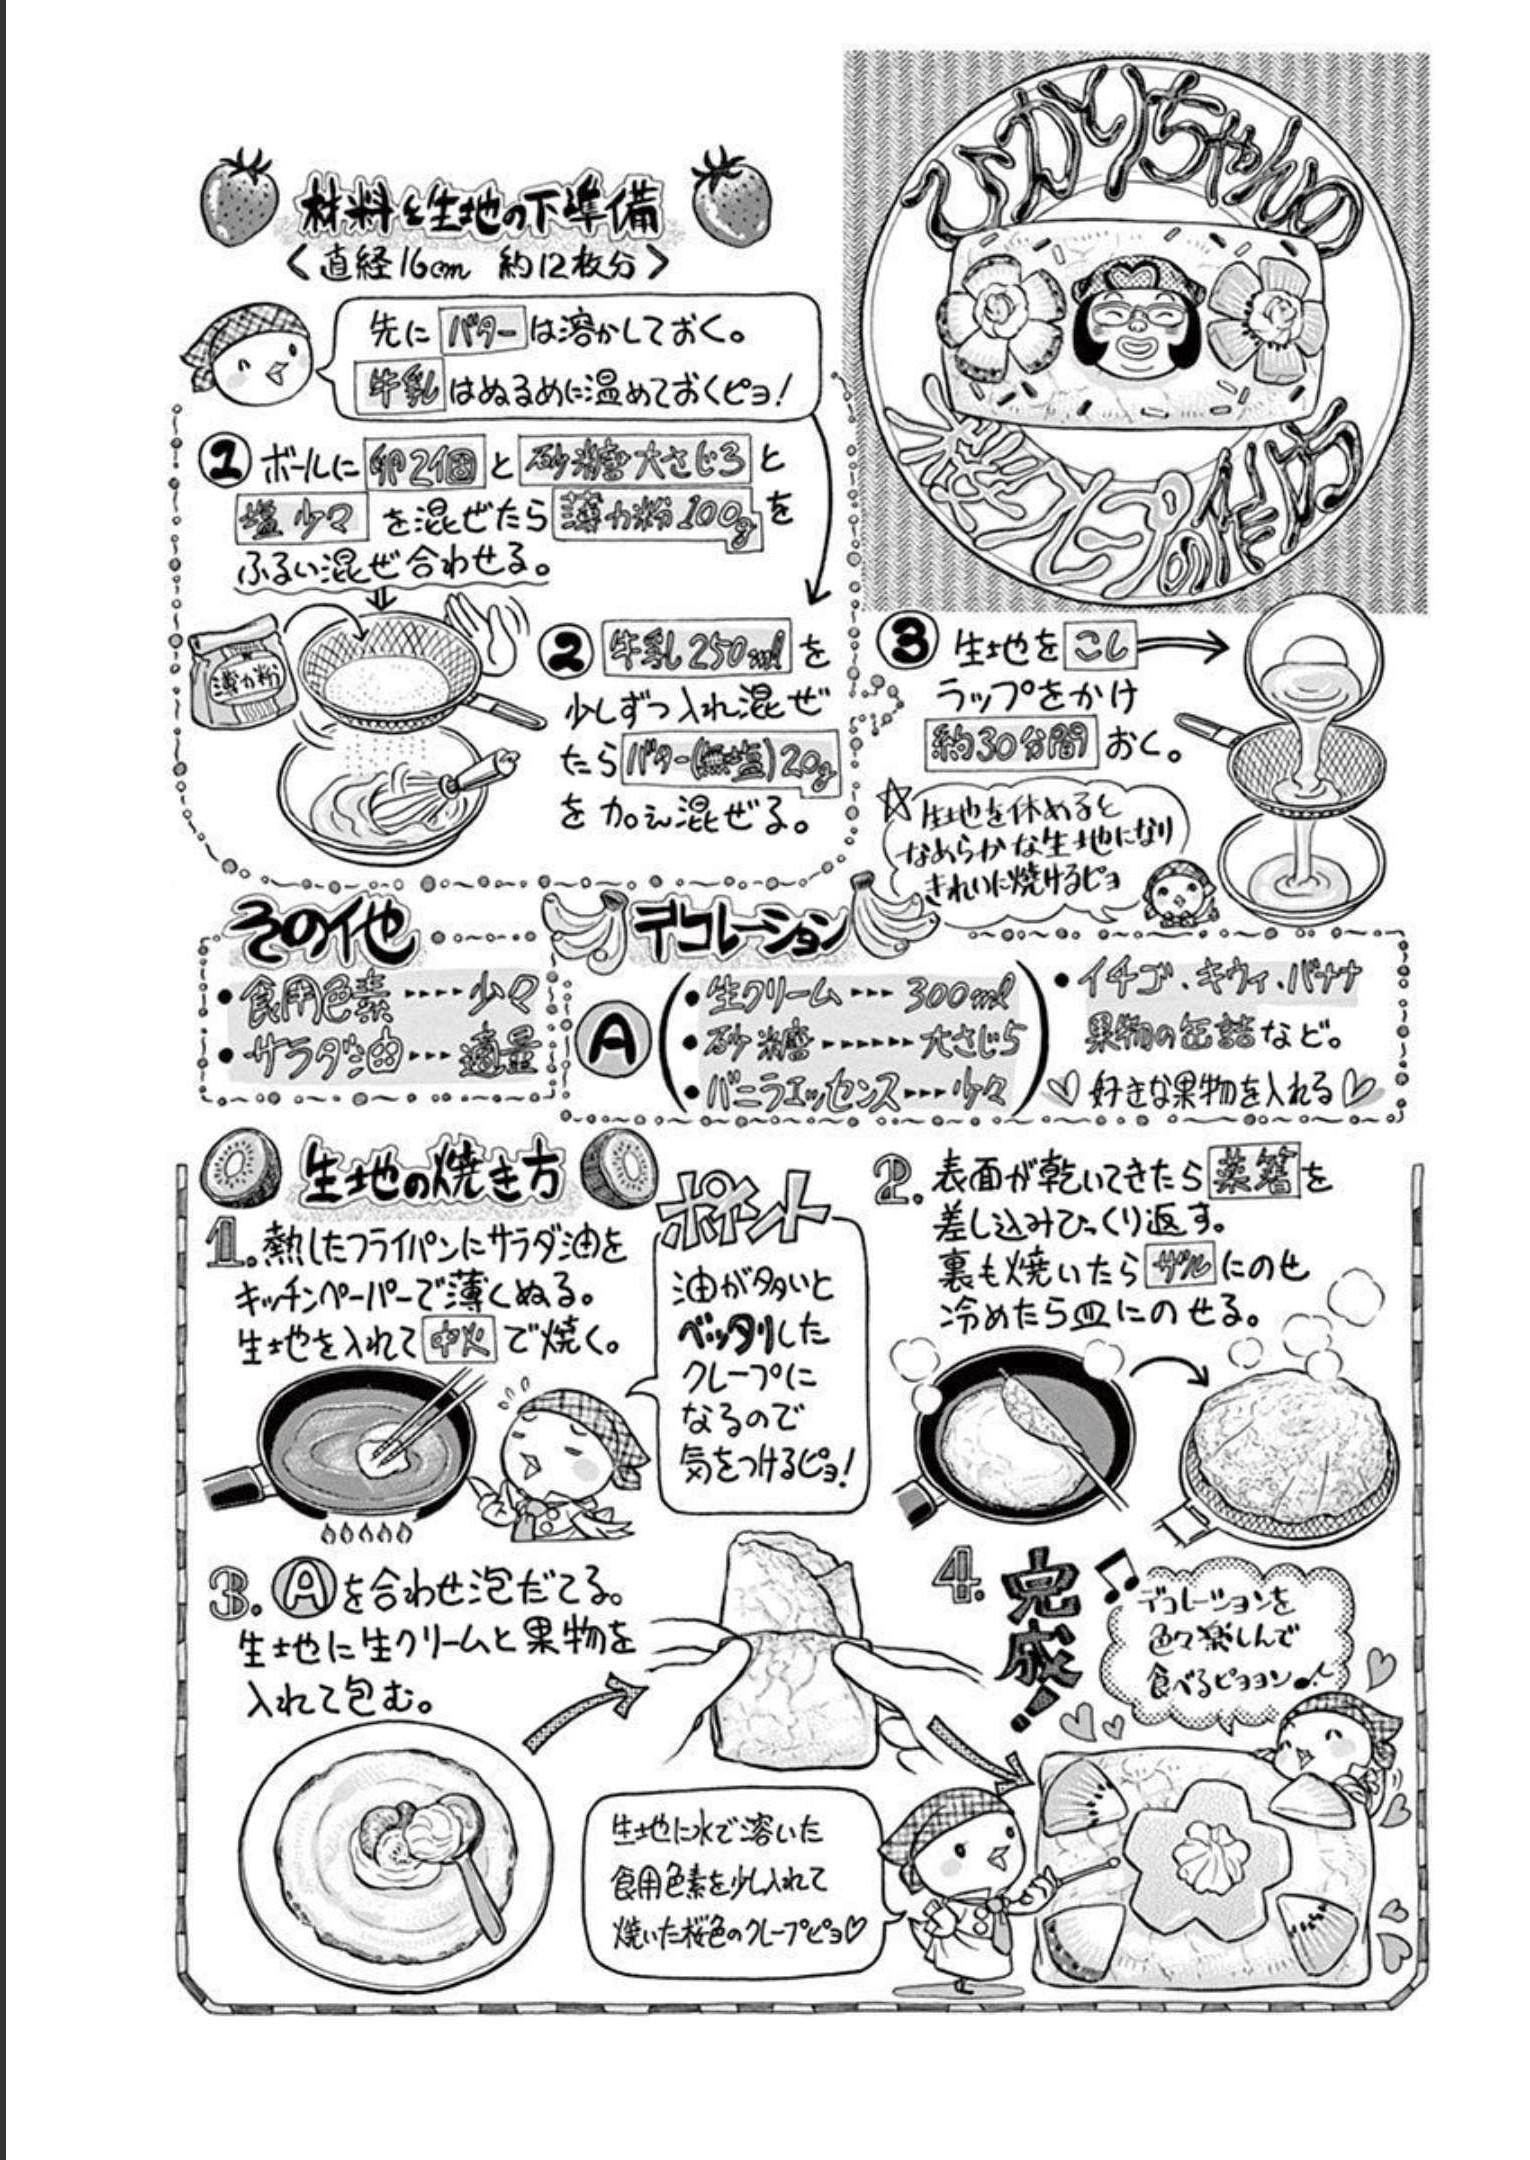 ひかりちゃんの
桜クレープの作り方
材料と生地の下準備
<直経16cm 約12枚分>
先にバターは溶かしておく。
牛乳はぬるめに温めておくピョ!
1 ボールに卵2個と砂糖大さじ3と
塩少々を混ぜたら薄力粉100gを
ふるい混ぜ合わせる。
薄力粉
2 牛乳250mlを
少しずつ入れ混ぜ
たらバター(無塩)20g
を加え混ぜる。
3 生地をこし
ラップをかけ
約30分間おく。
☆生地を休めると
なめらかな生地になり
きれいに焼けるピョ
その他
・食用色素----少々
・サラダ油---適量
デコレーション
A
・生クリーム---300ml
・砂糖------大さじ5
・バニラエッセンス---少々
・イチゴ、キウィ、バナナ
果物の缶詰など。
♡好きな果物を入れる♡
生地の焼き方
1.熱したフライパンにサラダ油を
キッチンペーパーで薄くぬる。
生地を入れて中火で焼く。
ポイント
油が多いと
ベッタリした
クレープに
なるので
気をつけるピョ!
2.表面が乾いてきたら菜箸を
差し込みひっくり返す。
裏も焼いたらザルにのせ
冷めたら皿にのせる。
3.Aを合わせ泡だてる。
生地に生クリームと果物を
入れて包む。
4.完成!
デコレーションを
色々楽しんで
食べるピョョン♪
生地に水で溶いた
食用色素を少し入れて
焼いた桜色のクレープピョ♡